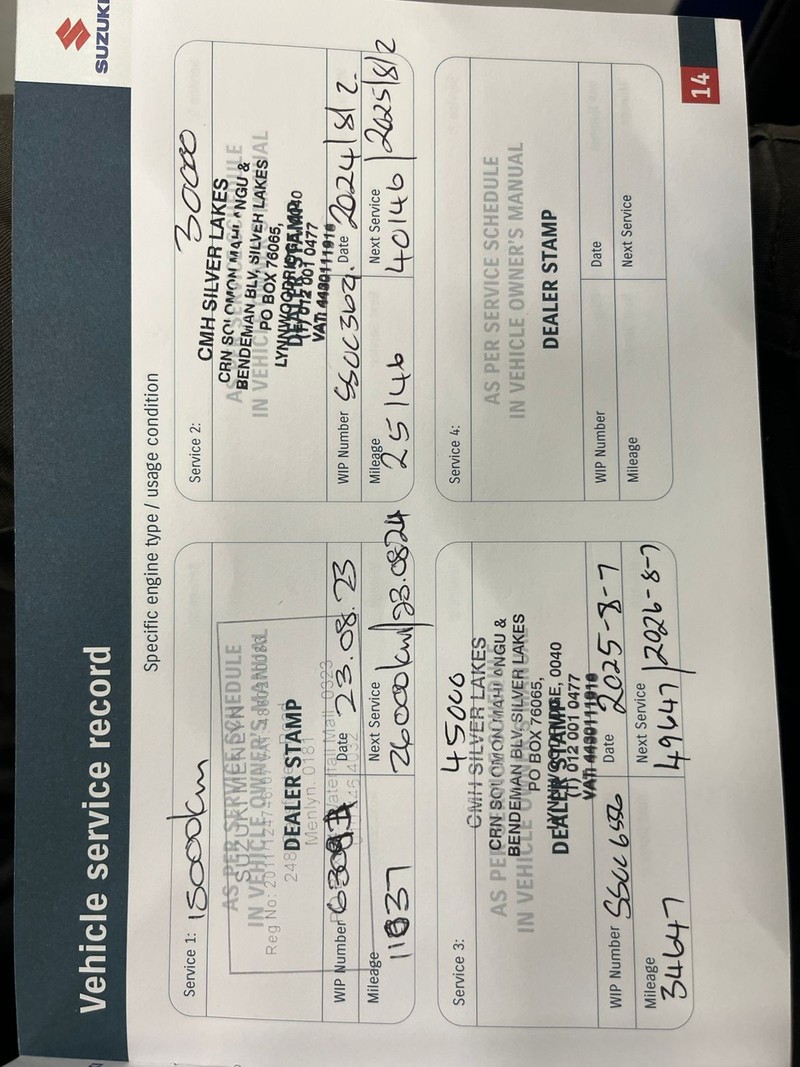 Vehicle service record
SUZUKI
Specific engine type / usage condition
Service 1: 15000km
AS PER SERVICE SCHEDULE
SUZUKI MENLYN
IN VEHICLE OWNER'S MANUAL
DEALER STAMP
Menlyn. 0181
WIP Number
Date 23.08.23
Mileage
Next Service
26000km/23.0824
Service 2: 30000
CMH SILVER LAKES
CRN SOLOMON MAHLANGU &
AS PER SERVICE SCHEDULE
BENDEMAN BLV, SILVER LAKES
IN VEHICLE OWNER'S MANUAL
PO BOX 76065,
LYNNWOODRIDGE, 0040
DEALER STAMP
(T) 012 001 0477
WIP Number SSUC362. Date 2024/8/2.
Mileage
Next Service
25146
40146/2025/8/2
Service 3: 45000
CMH SILVER LAKES
CRN SOLOMON MAHLANGU &
AS PER SERVICE SCHEDULE
BENDEMAN BLV, SILVER LAKES
IN VEHICLE OWNER'S MANUAL
PO BOX 76065,
LYNNWOODRIDGE, 0040
DEALER STAMP
(T) 012 001 0477
WIP Number SSUC6556 Date 2025-8-7
Mileage
Next Service
34647
49647/2026-8-7
Service 4:
AS PER SERVICE SCHEDULE
IN VEHICLE OWNER'S MANUAL
DEALER STAMP
WIP Number
Date
Mileage
Next Service
14